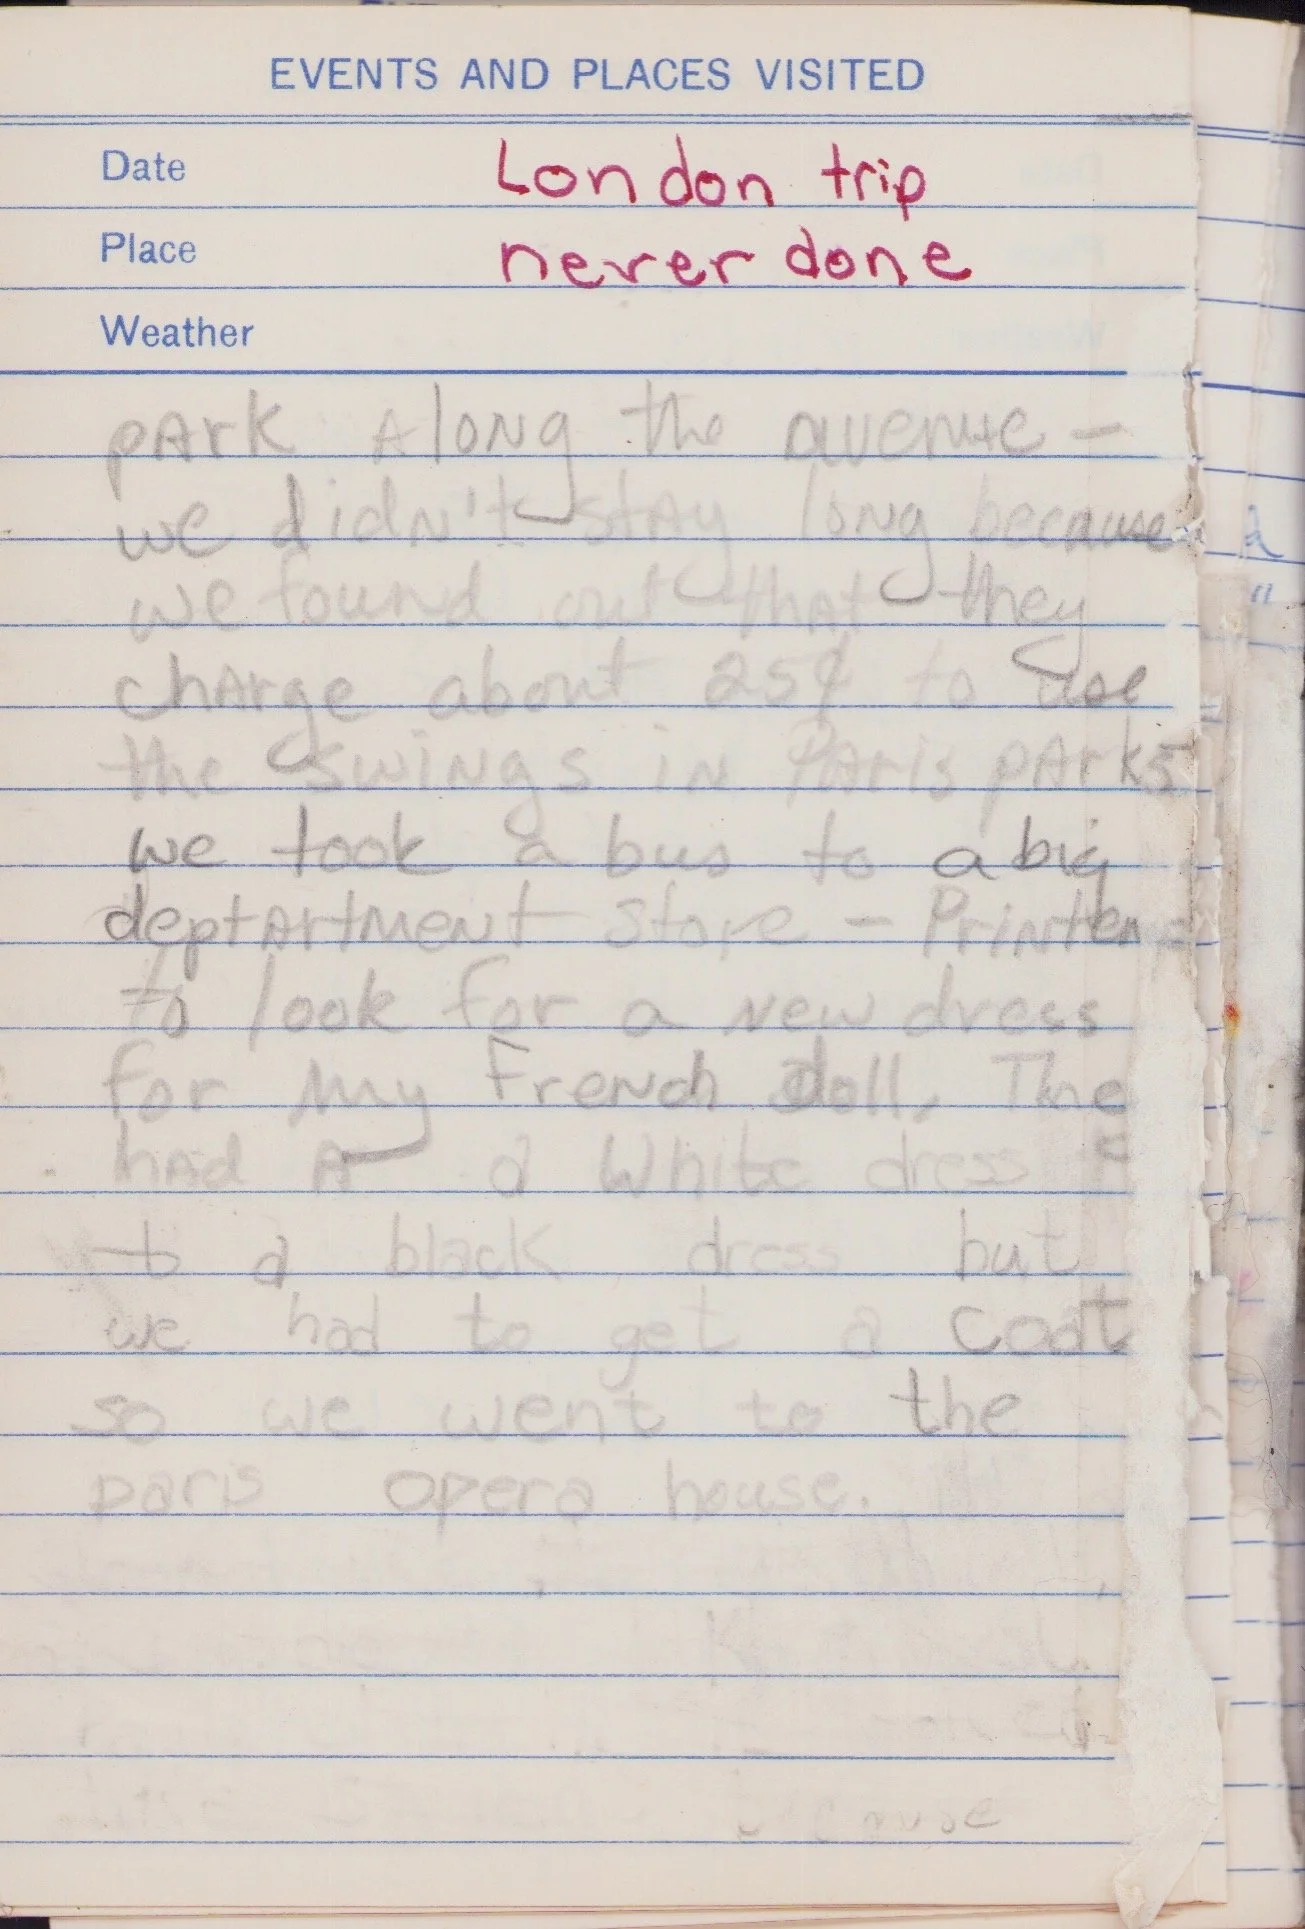 EVENTS AND PLACES VISITED
Date London trip
Place never done
Weather
pArk Along the avenue –
we didn't stAy long because
we found out thAt they
chArge about 25¢ to use
the swings in PAris pArks
we took a bus to a big
deptArtment store – Printemps
to look for a new dress
for my French doll. The
hAd A a white dress
to a black dress but
we had to get a coat
so we went to the
paris opera house.